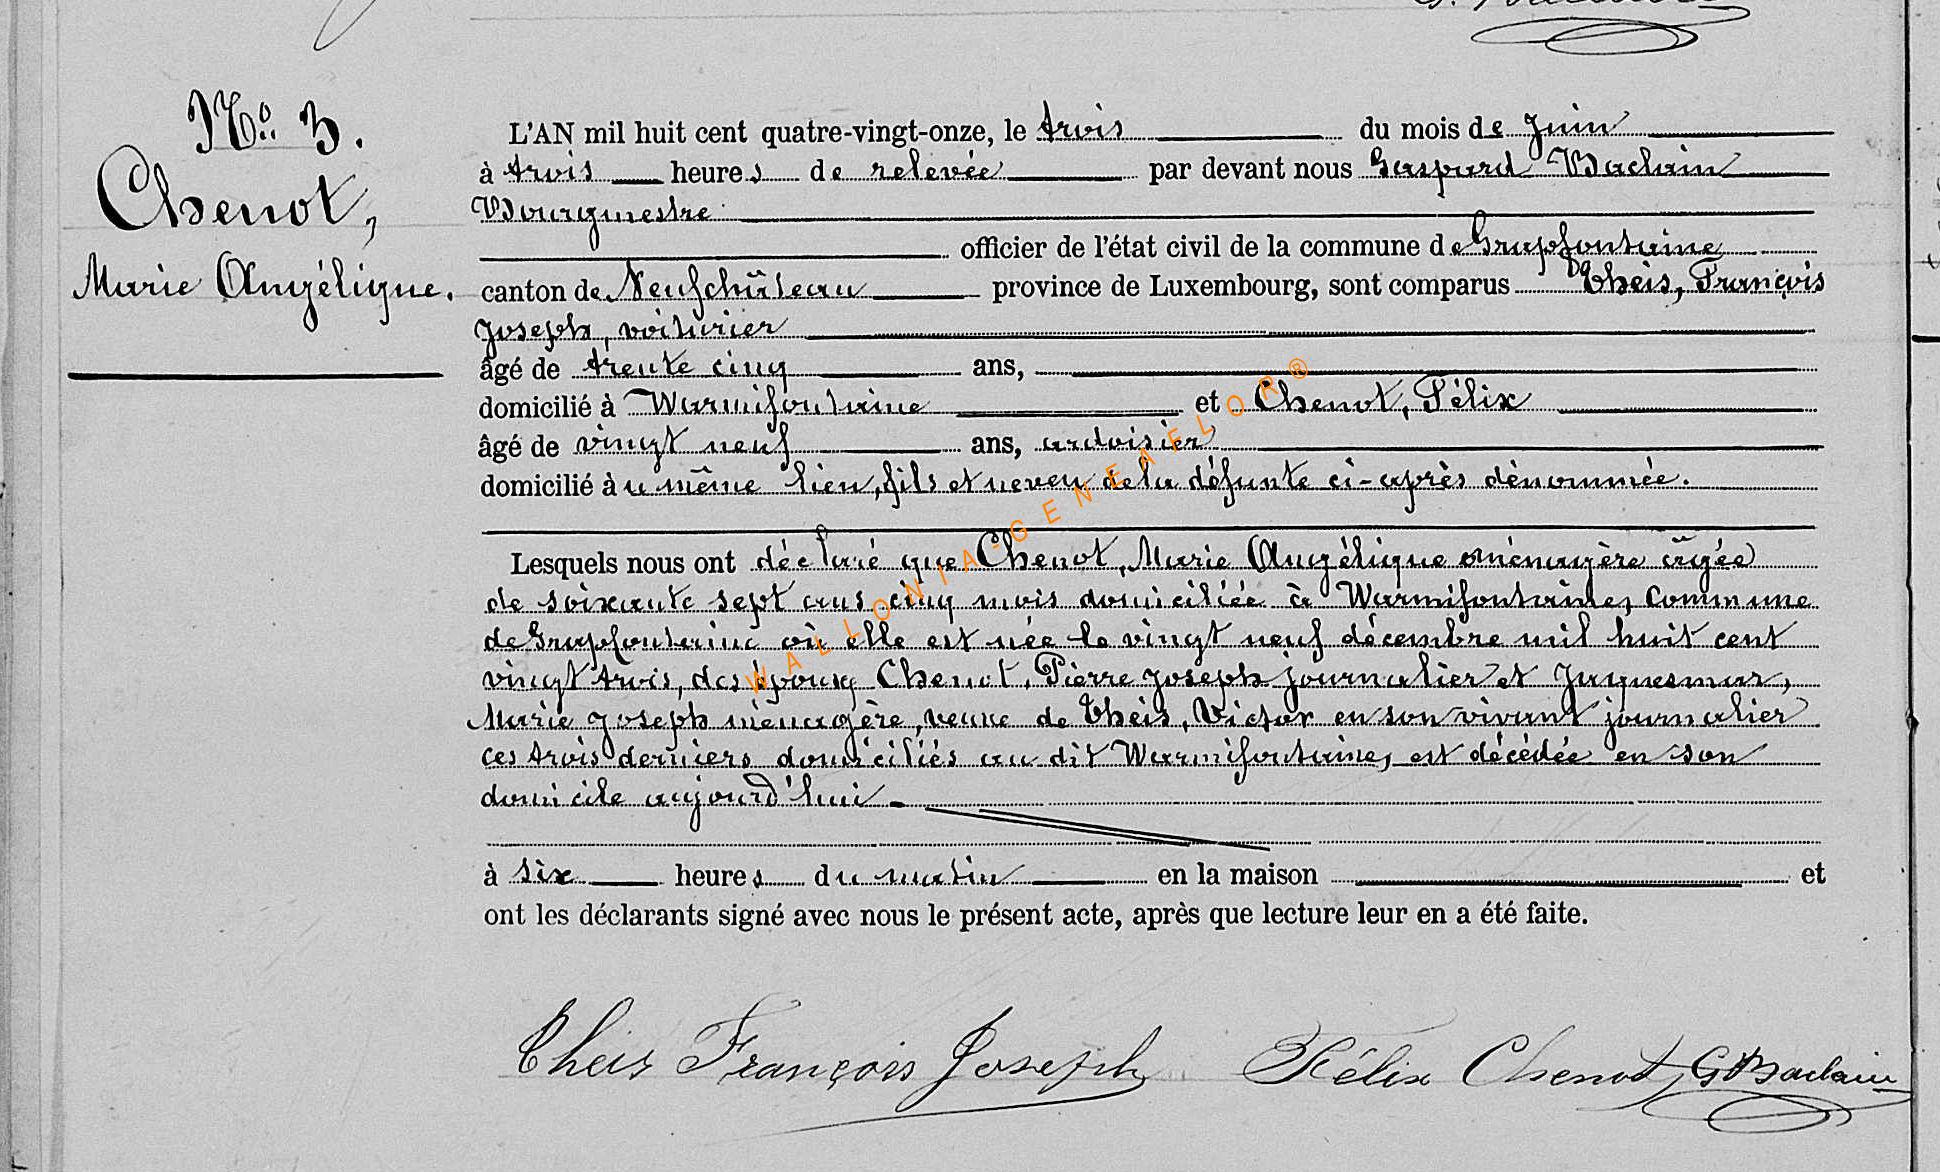 No. 3.
Chenot,
Marie Angélique.
L'AN mil huit cent quatre-vingt-onze, le trois du mois de juin
à trois heures de relevée par devant nous Gaspard Baclain
Bourgmestre
officier de l'état civil de la commune de Grapfontaine
canton de Neufchâteau province de Luxembourg, sont comparus Theis, François
Joseph, voiturier
âgé de trente cinq ans,
domicilié à Warmifontaine et Chenot, Félix
âgé de vingt neuf ans, ardoisier
domicilié au même lieu, fils et neveu de la défunte ci-après dénommée.
Lesquels nous ont déclaré que Chenot, Marie Angélique ménagère âgée
de soixante sept ans cinq mois domiciliée à Warmifontaine, commune
de Grapfontaine où elle est née le vingt neuf décembre mil huit cent
vingt trois, des époux Chenot, Pierre Joseph journalier et Jaquesmar,
Marie Joseph ménagère, veuve de Theis, Victor en son vivant journalier
ces trois derniers domiciliés au dit Warmifontaine, est décédée en son
domicile aujourd'hui
à six heures du matin en la maison et
ont les déclarants signé avec nous le présent acte, après que lecture leur en a été faite.
Theis François Joseph Félix Chenot GBaclain
WALLONIA-GENEAFLOR®